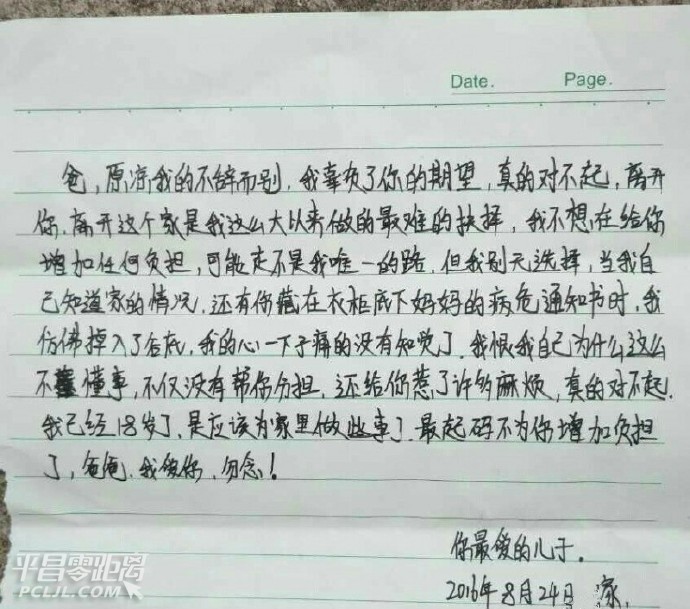 Date. Page.
爸，原谅我的不辞而别，我辜负了你的期望，真的对不起，离开
你，离开这个家是我这么大以来做的最难的抉择，我不想在给你
增加任何负担，可能走不是我唯一的路，但我别无选择，当我自
己知道家的情况，还有你藏在衣柜底下妈妈的病危通知书时，我
仿佛掉入了谷底，我的心一下子痛的没有知觉了，我恨我自己为什么这么
不懂事，不仅没有帮你分担，还给你惹了许多麻烦，真的对不起．
我已经18岁了，是应该为家里做些事了，最起码不为你增加负担
了，爸爸，我爱你，勿念！
你最爱的儿子．
2016年8月24日 家．
平昌零距离
PCLJL.COM